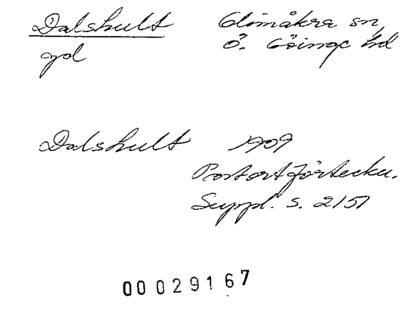 Dalshult Glimåkra sn,
gd Ö. Göinge hd
Dalshult 1909
Postortförteckn.
Suppl. s. 2151
00029167